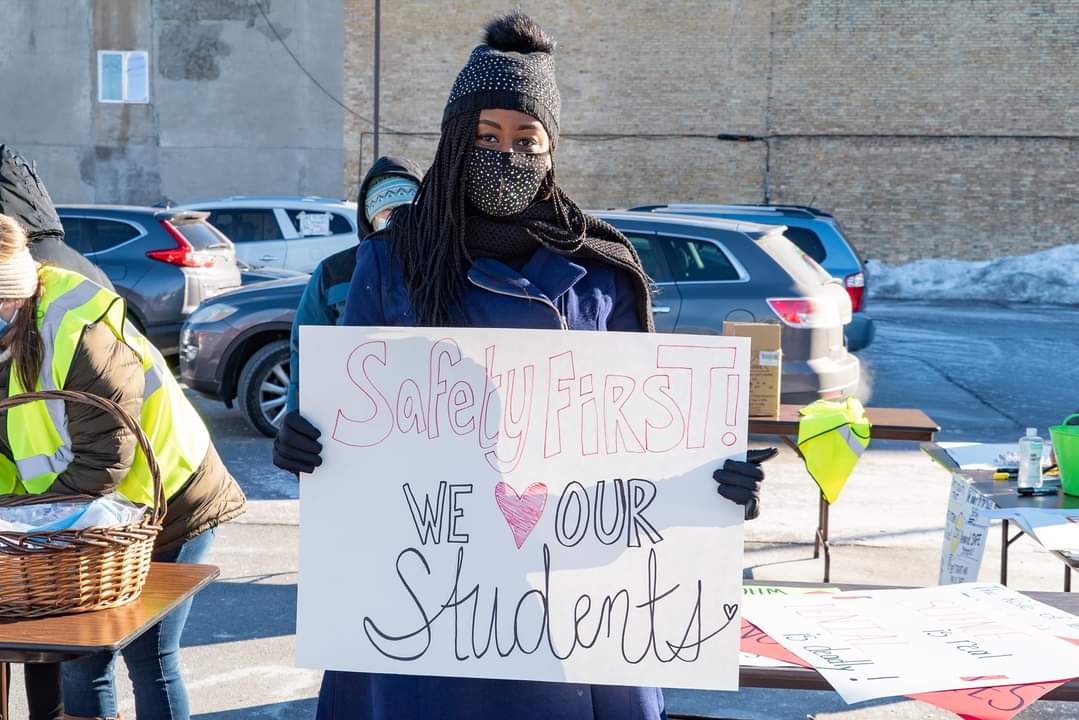 Safety FIRST!
WE OUR
Students
is deadly!
is real